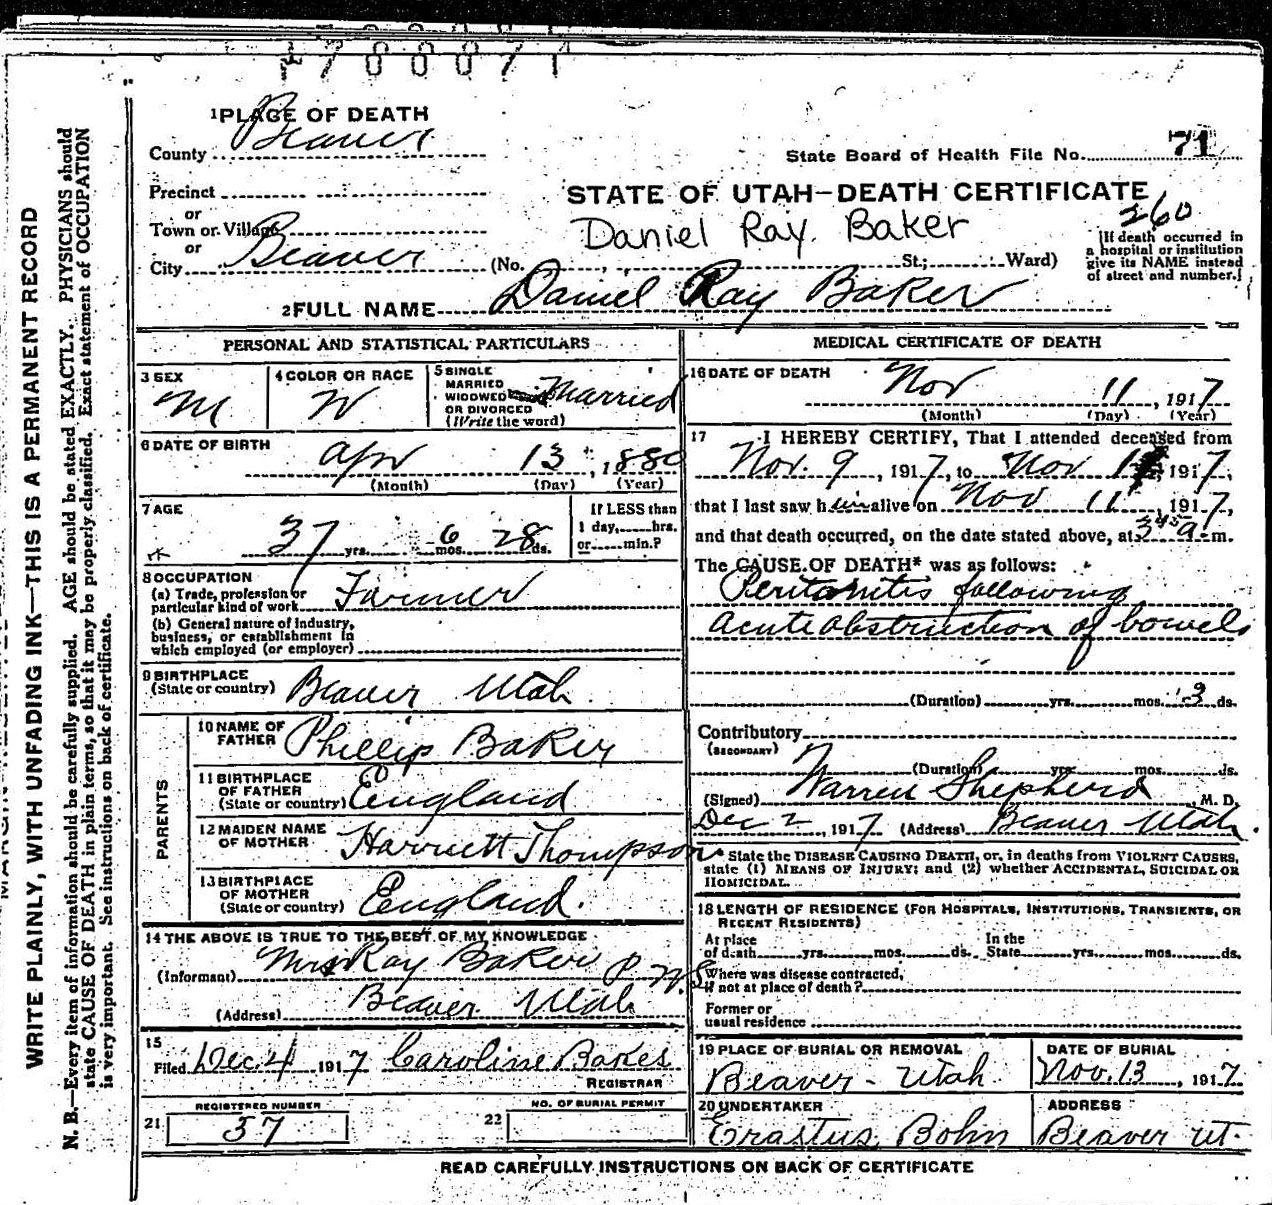 1700071
1 PLACE OF DEATH
County Beaver
State Board of Health File No. 71
Precinct
or
Town or Village
or
City Beaver
STATE OF UTAH—DEATH CERTIFICATE
260
Daniel Ray Baker
(No. St.; Ward)
[If death occurred in
a hospital or institution
give its NAME instead
of street and number.]
2 FULL NAME Daniel Ray Baker
PERSONAL AND STATISTICAL PARTICULARS
3 SEX
M
4 COLOR OR RACE
W
5 SINGLE
MARRIED
WIDOWED
OR DIVORCED
(Write the word)
Married
6 DATE OF BIRTH
Apr 13, 1880
(Month) (Day) (Year)
7 AGE
37 yrs. 6 mos. 28 ds.
If LESS than
1 day, hrs.
or min.?
8 OCCUPATION
(a) Trade, profession or
particular kind of work Farmer
(b) General nature of industry,
business, or establishment in
which employed (or employer)
9 BIRTHPLACE
(State or country) Beaver Utah
PARENTS
10 NAME OF
FATHER Phillip Baker
11 BIRTHPLACE
OF FATHER
(State or country) England
12 MAIDEN NAME
OF MOTHER Harriett Thompson
13 BIRTHPLACE
OF MOTHER
(State or country) England.
14 THE ABOVE IS TRUE TO THE BEST OF MY KNOWLEDGE
(Informant) Mrs Ray Baker
(Address) Beaver Utah
15
Filed Dec. 4 1917 Caroline Bakes
REGISTRAR
REGISTERED NUMBER
21 37
NO. OF BURIAL PERMIT
22
MEDICAL CERTIFICATE OF DEATH
16 DATE OF DEATH
Nov 11, 1917
(Month) (Day) (Year)
17 I HEREBY CERTIFY, That I attended deceased from
Nov. 9, 1917, to Nov 11, 1917,
that I last saw him alive on Nov 11, 1917,
and that death occurred, on the date stated above, at 3 45 a. m.
The CAUSE OF DEATH* was as follows:
Peritonitis following
acute obstruction of bowels
(Duration) yrs. mos. 3 ds.
Contributory
(SECONDARY)
(Duration) yrs. mos. ds.
(Signed) Warren Shepherd, M. D.
Dec 2, 1917 (Address) Beaver Utah.
* State the DISEASE CAUSING DEATH, or, in deaths from VIOLENT CAUSES,
state (1) MEANS OF INJURY; and (2) whether ACCIDENTAL, SUICIDAL OR
HOMICIDAL.
18 LENGTH OF RESIDENCE (FOR HOSPITALS, INSTITUTIONS, TRANSIENTS, OR
RECENT RESIDENTS)
At place
of death yrs. mos. ds.
In the
State yrs. mos. ds.
Where was disease contracted,
if not at place of death?
Former or
usual residence
19 PLACE OF BURIAL OR REMOVAL
Beaver - Utah
DATE OF BURIAL
Nov. 13, 1917
20 UNDERTAKER
Erastus Bohn
ADDRESS
Beaver Ut.
READ CAREFULLY INSTRUCTIONS ON BACK OF CERTIFICATE
WRITE PLAINLY, WITH UNFADING INK—THIS IS A PERMANENT RECORD
N. B.—Every item of information should be carefully supplied. AGE should be stated EXACTLY. PHYSICIANS should
state CAUSE OF DEATH in plain terms, so that it may be properly classified. Exact statement of OCCUPATION
is very important. See instructions on back of certificate.